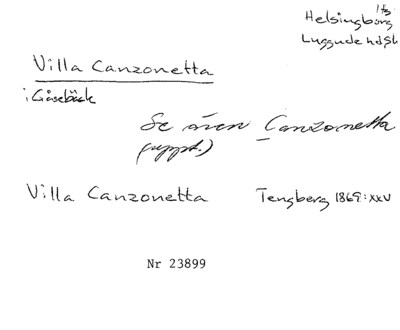 Hfs
Helsingborg
Luggude hd Skl
Villa Canzonetta
i Gåsebäck
Se även Canzonetta
(uppsl.)
Villa Canzonetta Tengberg 1869:XXV
Nr 23899